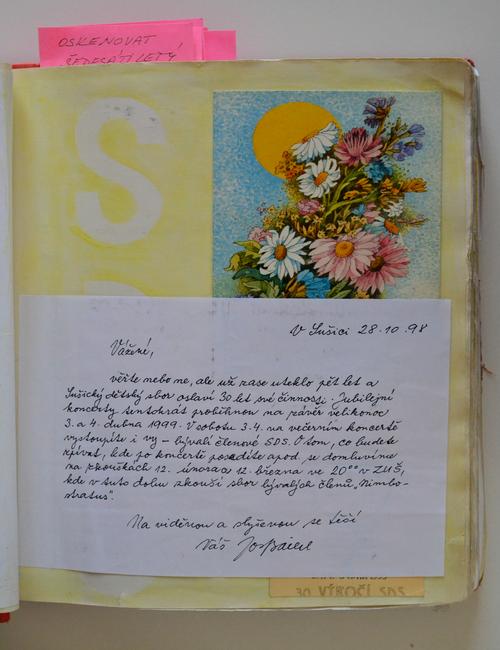 OSKENOVAT
ŠEDESÁTILETÝ
S
V Sušici 28.10.98
Vážení,
věřte nebo ne, ale už zase uteklo pět let a
Sušický dětský sbor oslaví 30 let své činnosti. Jubilejní
koncerty tentokrát proběhnou na závěr velikonoc
3. a 4. dubna 1999. V sobotu 3.4. na večerním koncertě
vystoupíte i vy – bývalí členové SDS. O tom, co budete
zpívat, kde po koncertě posedíte apod. se domluvíme
na zkouškách 12. února a 12. března ve 20⁰⁰ v ZUŠ,
kde v tuto dobu zkouší sbor bývalých členů „Nimbo-
stratus".
Na viděnou a slyšenou se těší
Váš
30 VÝROČÍ SDS